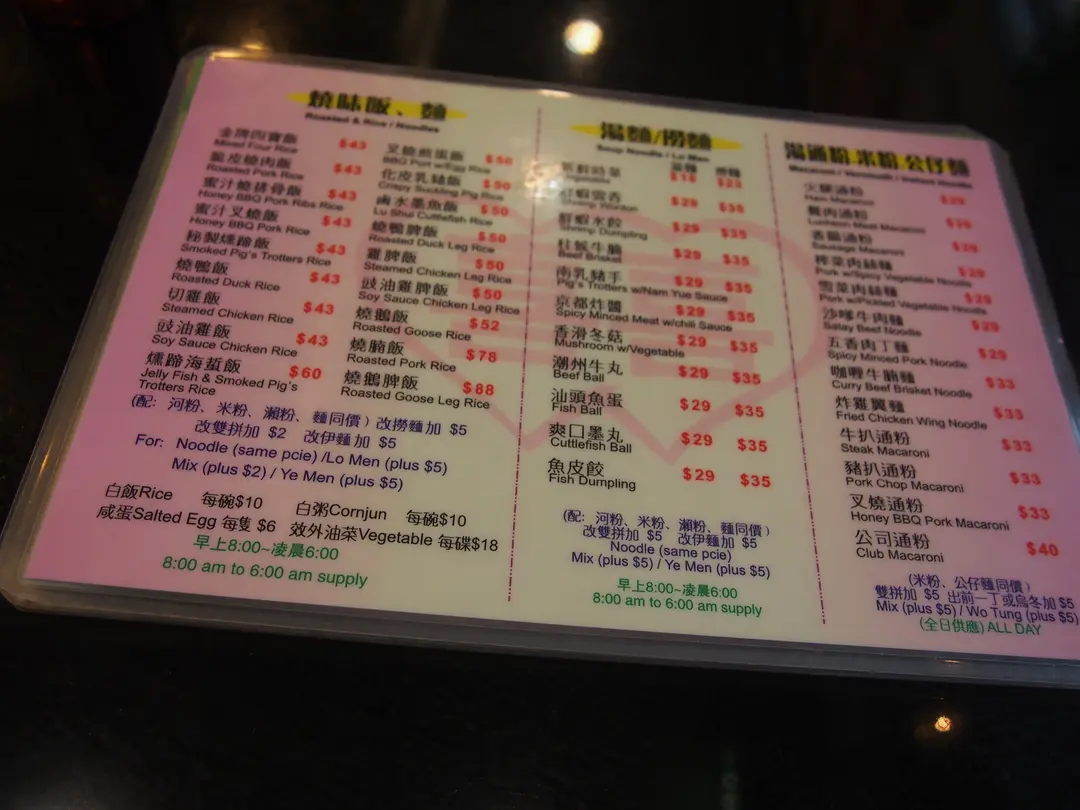 燒味飯、麵
Roasted & Rice / Noodles
金牌四寶飯 $43
Mixed Four Rice
脆皮燒肉飯 $43
Roasted Pork Rice
蜜汁燒排骨飯 $43
Honey BBQ Pork Ribs Rice
蜜汁叉燒飯 $43
Honey BBQ Pork Rice
秘製燻蹄飯 $43
Smoked Pig's Trotters Rice
燒鴨飯 $43
Roasted Duck Rice
切雞飯 $43
Steamed Chicken Rice
豉油雞飯 $43
Soy Sauce Chicken Rice
燻蹄海蜇飯 $60
Jelly Fish & Smoked Pig's
Trotters Rice
叉燒煎蛋飯 $50
BBQ Port w/Egg Rice
化皮乳豬飯 $50
Crispy Suckling Pig Rice
鹵水墨魚飯 $50
Lu Shui Cuttlefish Rice
燒鴨脾飯 $50
Roasted Duck Leg Rice
雞脾飯 $50
Steamed Chicken Leg Rice
豉油雞脾飯 $50
Soy Sauce Chicken Leg Rice
燒鵝飯 $52
Roasted Goose Rice
燒腩飯 $78
Roasted Pork Rice
燒鵝脾飯 $88
Roasted Goose Leg Rice
(配: 河粉、米粉、瀨粉、麵同價) 改撈麵加 $5
改雙拼加 $2 改伊麵加 $5
For: Noodle (same pcie) /Lo Men (plus $5)
Mix (plus $2) / Ye Men (plus $5)
白飯Rice 每碗$10 白粥Cornjun 每碗$10
咸蛋Salted Egg 每隻 $6 效外油菜Vegetable 每碟$18
早上8:00~凌晨6:00
8:00 am to 6:00 am supply
湯麵/撈麵
Soup Noodle / Lo Men
湯麵 撈麵
新鮮時菜 $18 $23
Vegetable
紅蝦雲吞 $29 $35
Shrimp Wonton
鮮蝦水餃 $29 $35
Shrimp Dumpling
柱候牛腩 $29 $35
Beef Brisket
南乳豬手 $29 $35
Pig's Trotters w/Nam Yue Sauce
京都炸醬 $29 $35
Spicy Minced Meat w/chili Sauce
香滑冬菇 $29 $35
Mushroom w/Vegetable
潮州牛丸 $29 $35
Beef Ball
汕頭魚蛋 $29 $35
Fish Ball
爽口墨丸 $29 $35
Cuttlefish Ball
魚皮餃 $29 $35
Fish Dumpling
(配: 河粉、米粉、瀨粉、麵同價)
改雙拼加 $5 改伊麵加 $5
Noodle (same pcie)
Mix (plus $5) / Ye Men (plus $5)
早上8:00~凌晨6:00
8:00 am to 6:00 am supply
湯通粉 米粉 公仔麵
Macaroni / Vermicelli / Instant Noodle
火腿通粉 $29
Ham Macaroni
餐肉通粉 $29
Luncheon Meat Macaroni
香腸通粉 $29
Sausage Macaroni
榨菜肉絲麵 $29
Pork w/Spicy Vegetable Noodle
雪菜肉絲麵 $29
Pork w/Pickled Vegetable Noodle
沙嗲牛肉麵 $29
Satay Beef Noodle
五香肉丁麵 $29
Spicy Minced Pork Noodle
咖喱牛腩麵 $33
Curry Beef Brisket Noodle
炸雞翼麵 $33
Fried Chicken Wing Noodle
牛扒通粉 $33
Steak Macaroni
豬扒通粉 $33
Pork Chop Macaroni
叉燒通粉 $33
Honey BBQ Pork Macaroni
公司通粉 $40
Club Macaroni
(米粉、公仔麵同價)
雙拼加 $5 出前一丁或烏冬加 $5
Mix (plus $5) / Wo Tung (plus $5)
(全日供應) ALL DAY